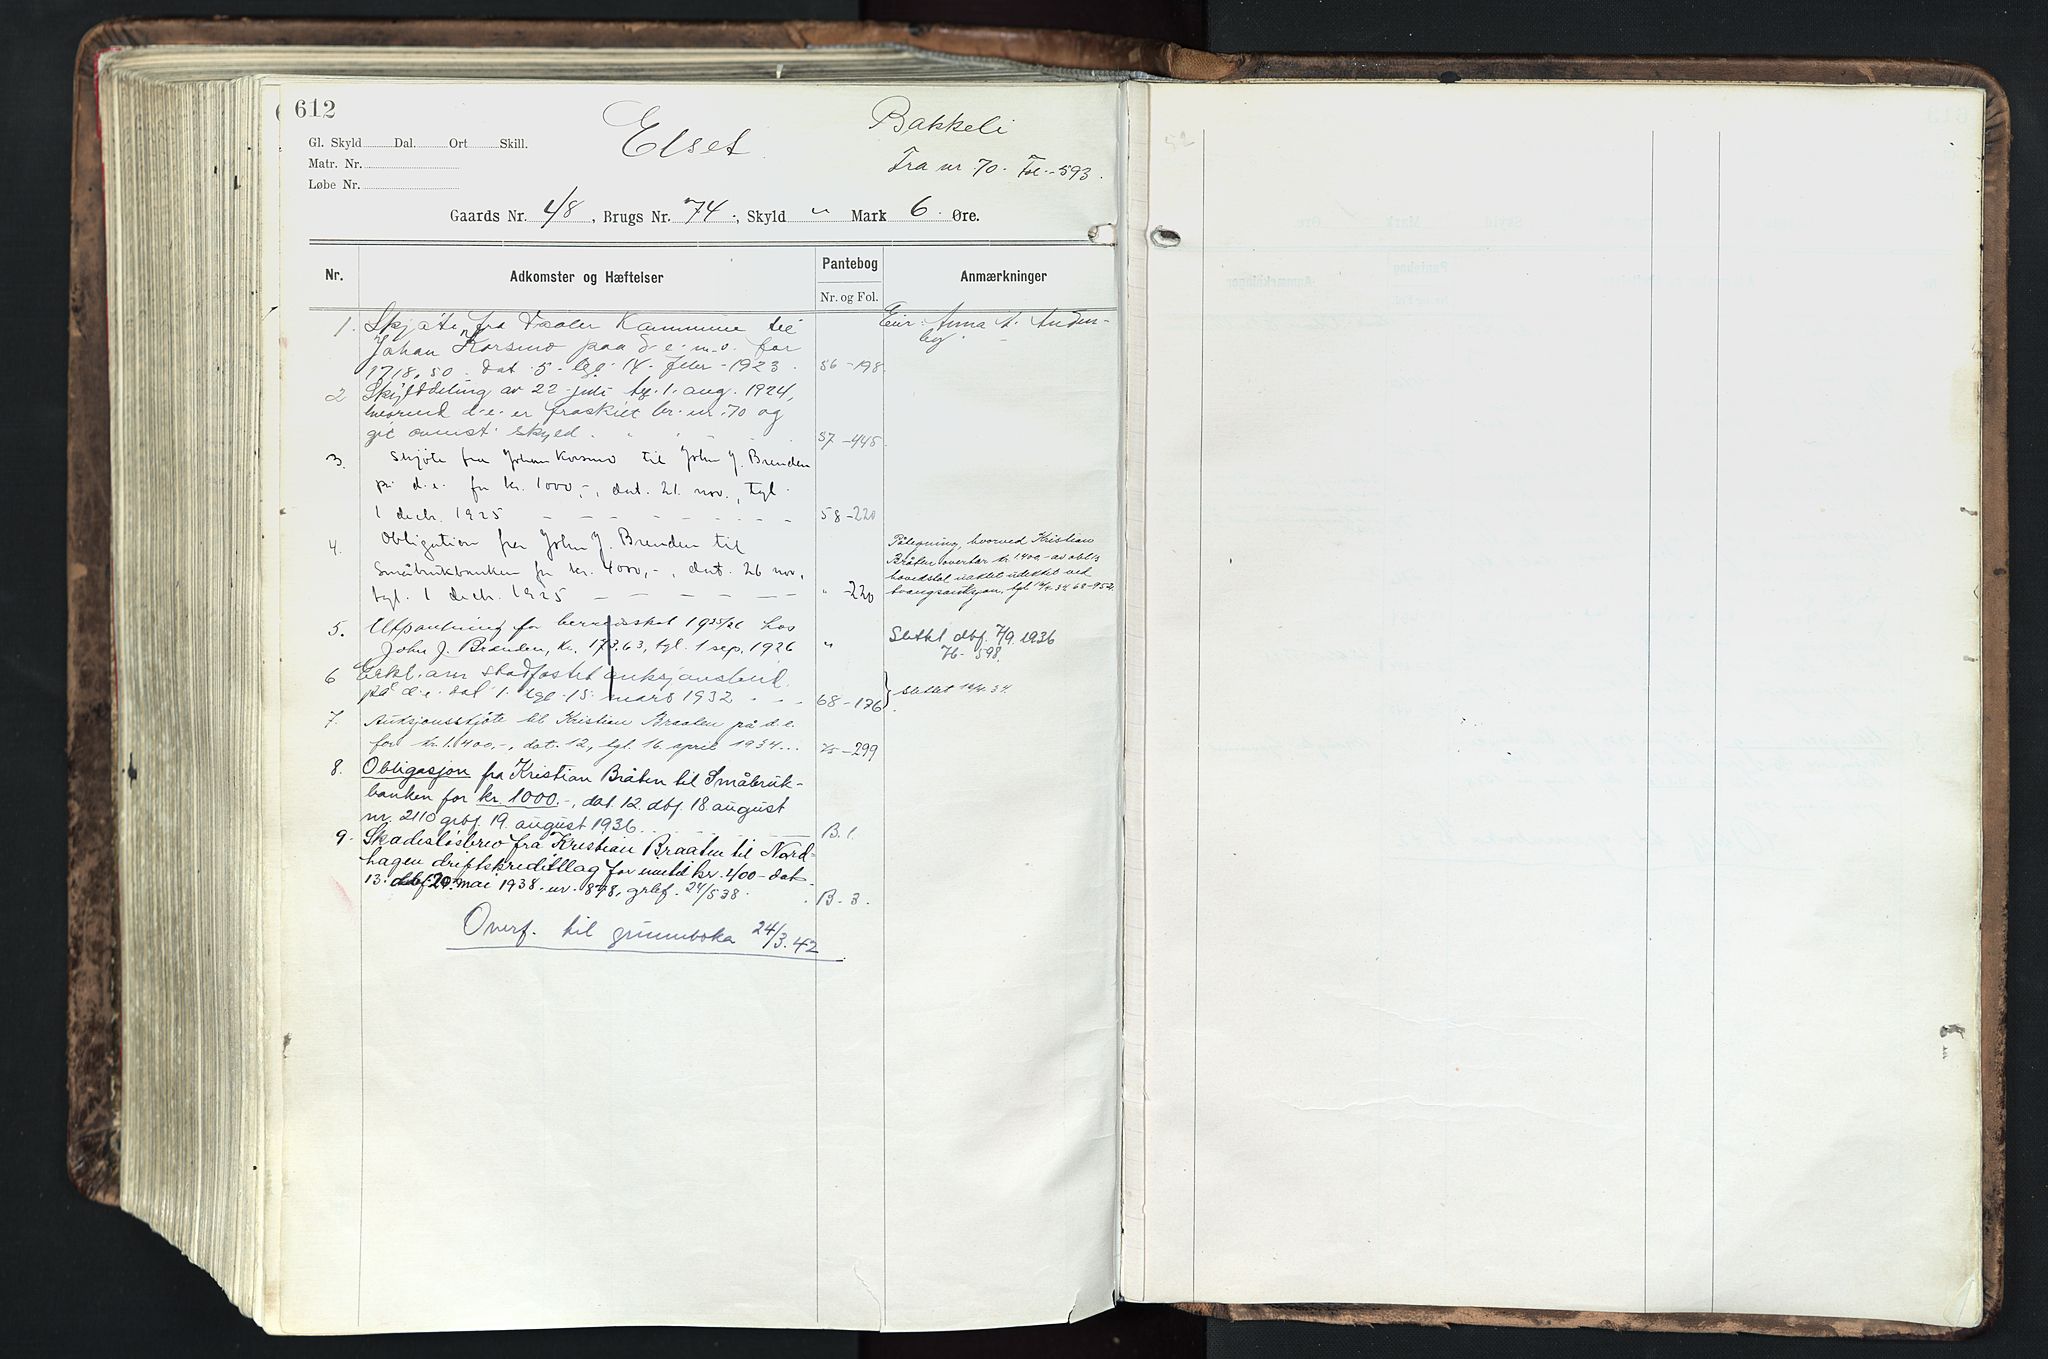 612
Elset
Bakkeli
Fra nr. 70. Fol. 593.
Gl. Skyld Dal. Ort Skill.
Matr. Nr.
Løbe Nr.
Gaards Nr. 48, Brugs Nr. 74, Skyld " Mark 6 Øre.
Nr. Adkomster og Hæftelser Pantebog Anmærkninger
Nr. og Fol.
1. Skjøte fra Kommune til Eier: Anna A.
Johan Korsmo paa d.e. m.v. for
1718,50 dat. 5. tgl. 14. febr. 1923. 56-198
2 Skylddeling av 22 juli tgl. 1. aug. 1924,
hvorved d.e. er fraskilt br. nr. 70 og
git ovennt. skyld. 57-445
3. Skjøte fra Johan Korsmo til John J. Brenden
på d.e. for kr. 1000,-, dat. 21. nov., tgl.
1 decbr. 1925 58-220
4. Obligation fra John J. Brenden til
Småbrukbanken for kr. 4000,-, dat. 26 nov.,
tgl. 1 decbr. 1925 " -220
Påtegning, hvorved Kristian
Bråten overtar kr. 1400,- av obl.s
hovedstol udekket ved
tvangsauksjon, tgl. 16/4 34 68-952
5. Utpantning for herredsskat 1925/26 hos
John J. Brenden, kr. 173.63, tgl. 1 sep. 1926 "
Slettet dbf. 7/9. 1936
76-598.
6 Erkl. om stadfestet auksjonsbud
på d.e. dat 1. tgl. 15. mars 1932 68-176 slettet 16/4. 34.
7. Auksjonsskjøte til Kristian Braaten på d.e.
for kr. 1.400,-, dat. 12, tgl. 16. april 1934 -299
8. Obligasjon fra Kristian Bråten til Småbruk-
banken for kr. 1000.-, dat. 12. dbf. 18. august
nr. 2110 grbf. 19. august 1936. B. 1.
9. Skadesløsbrev fra Kristian Braaten til Nord-
hagen driftskredittlag for inntil kr. 400- dat.
13. dbf. 20. mai 1938. nr. 878, grbf. 24/5 38. B. 3.
Overf. til grunnboka 24/3. 42